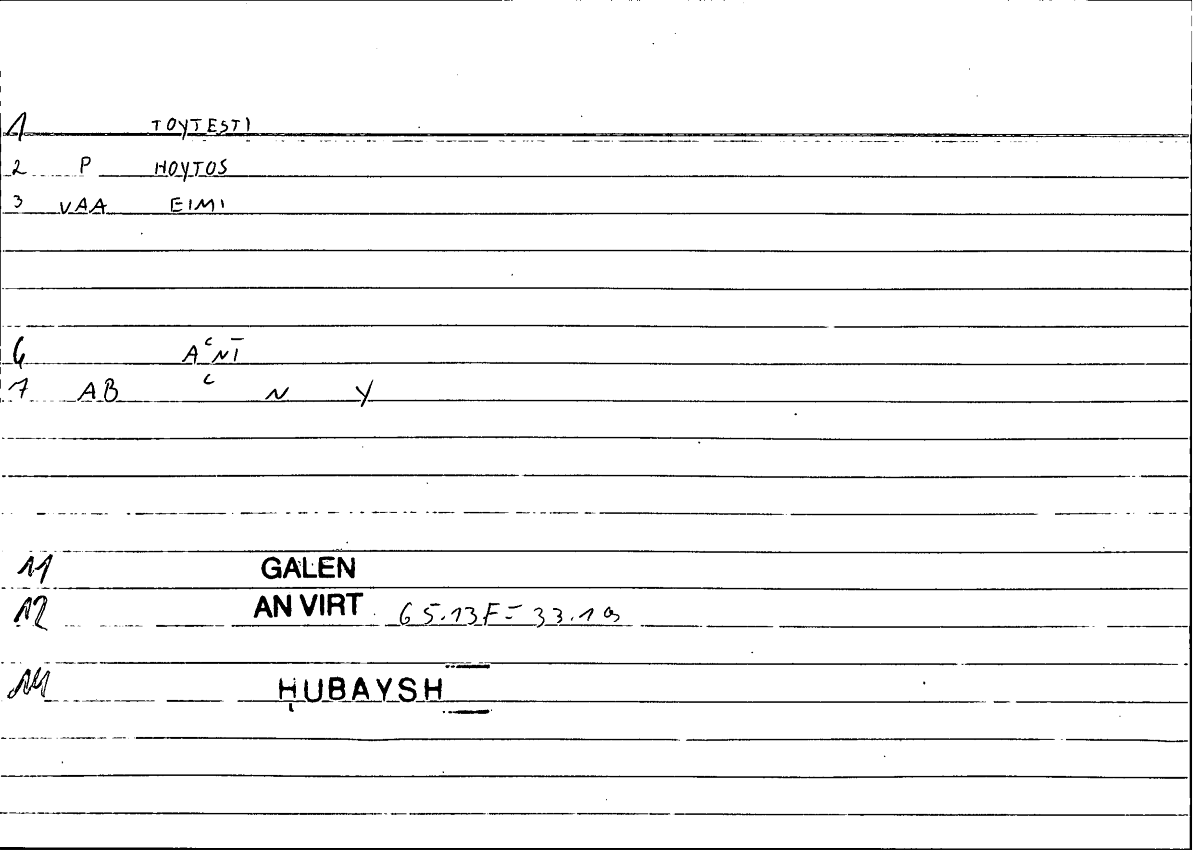 1 TOYTESTI
2 P HOYTOS
3 VAA EIMI
6 AʿNĪ
7 AB ʿ N Y
11 GALEN
12 AN VIRT 65.13F= 33.19
14 ḤUBAYSH